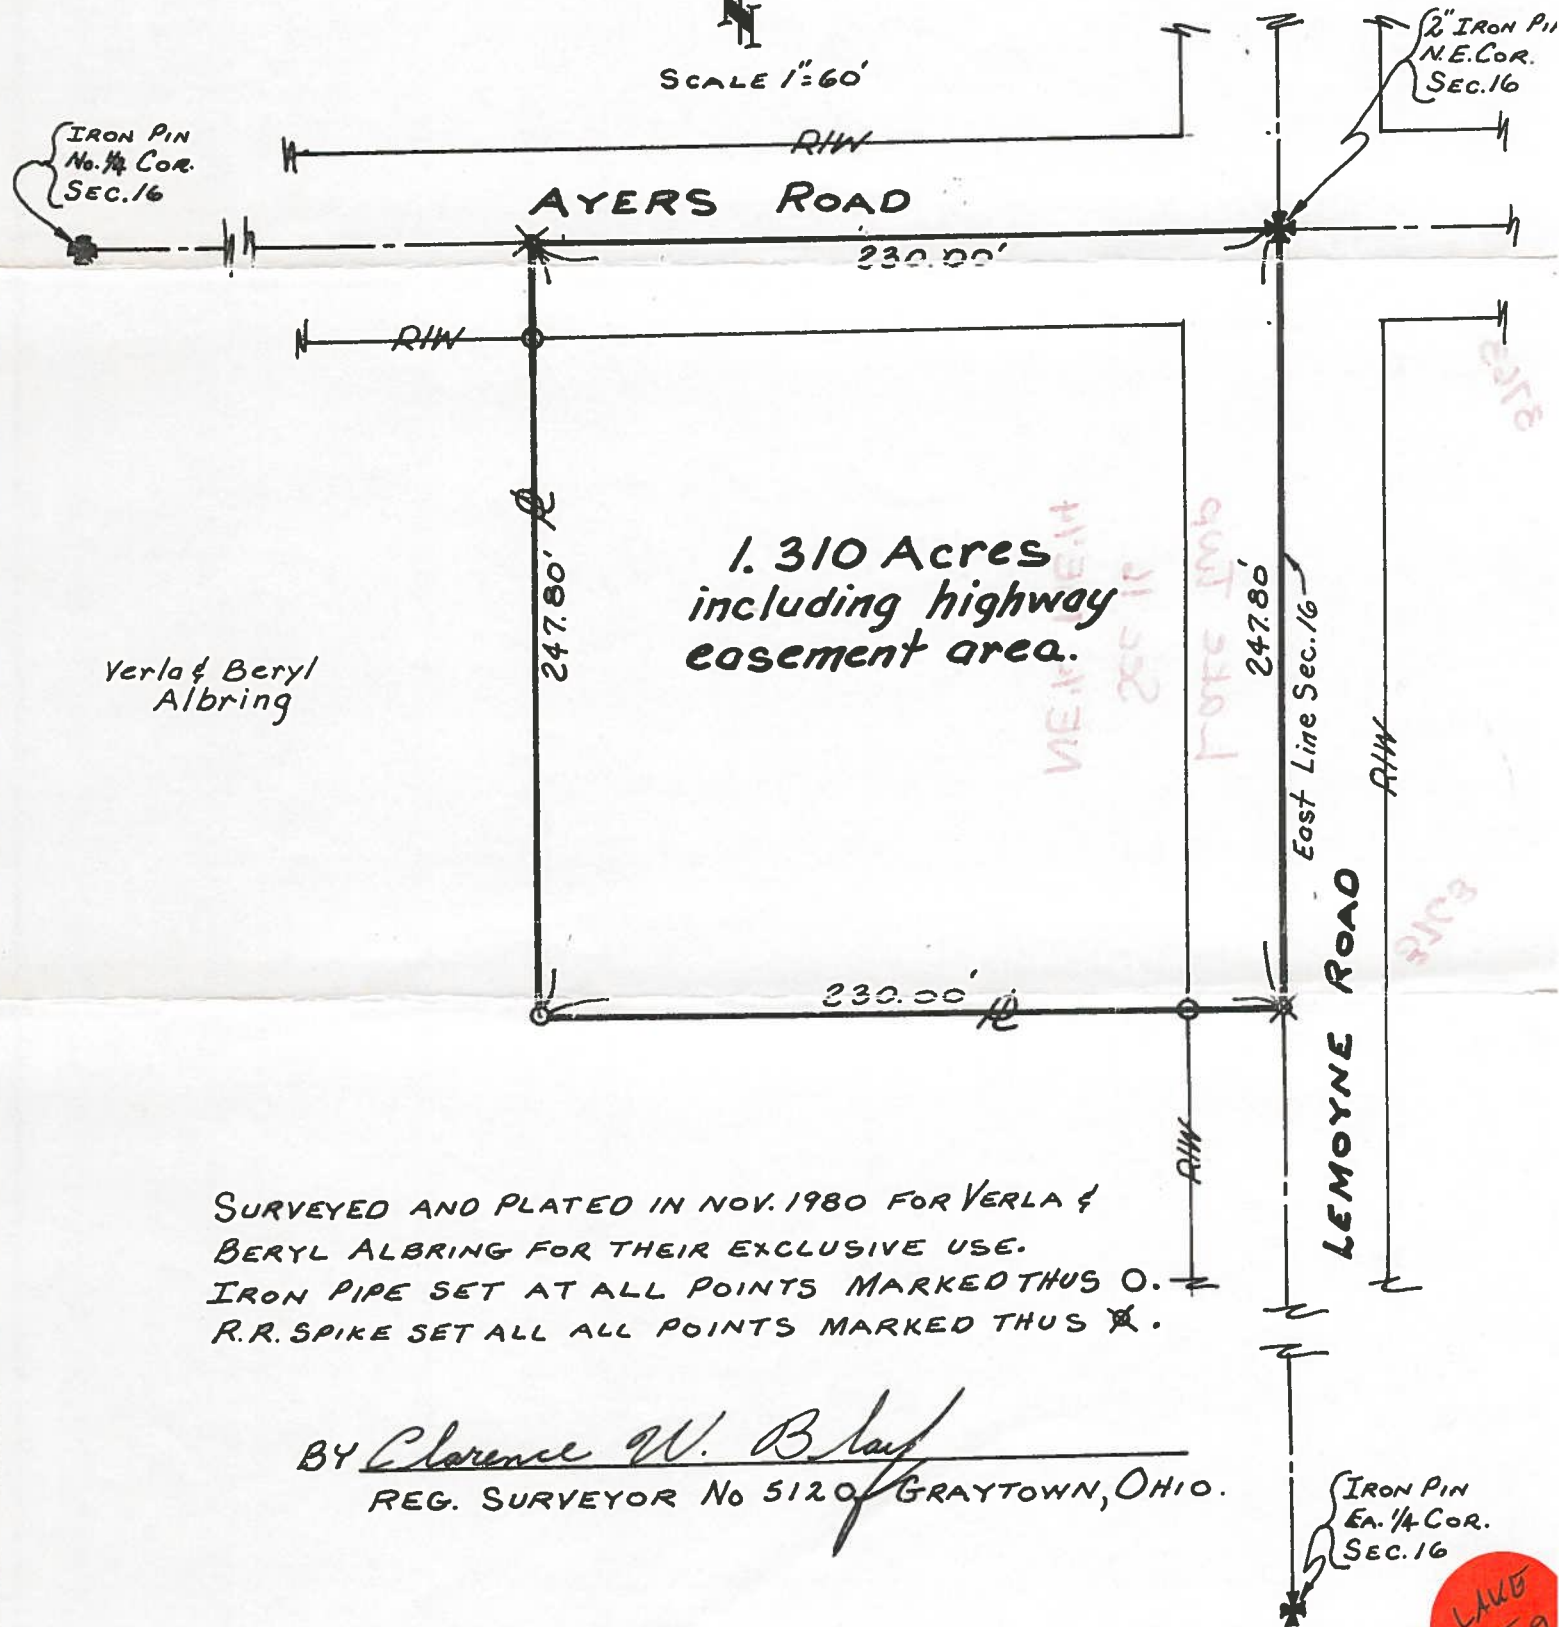 N
SCALE 1"=60'
2" IRON PIN
N.E. COR.
SEC. 16
IRON PIN
No. 1/4 COR.
SEC. 16
R/W
AYERS ROAD
230.00'
R/W
247.80' PL
1.310 Acres
including highway
easement area.
NE 1/4 NE 1/4
Sec 16
Lake Twp
247.80'
East Line Sec. 16
Verla & Beryl
Albring
R/W
LEMOYNE ROAD
230.00' PL
R/W
SURVEYED AND PLATED IN NOV. 1980 FOR VERLA &
BERYL ALBRING FOR THEIR EXCLUSIVE USE.
IRON PIPE SET AT ALL POINTS MARKED THUS O.
R.R. SPIKE SET ALL ALL POINTS MARKED THUS X.
BY Clarence W. Blay
REG. SURVEYOR No 5120 of GRAYTOWN, OHIO.
IRON PIN
EA. 1/4 COR.
SEC. 16
LAKE